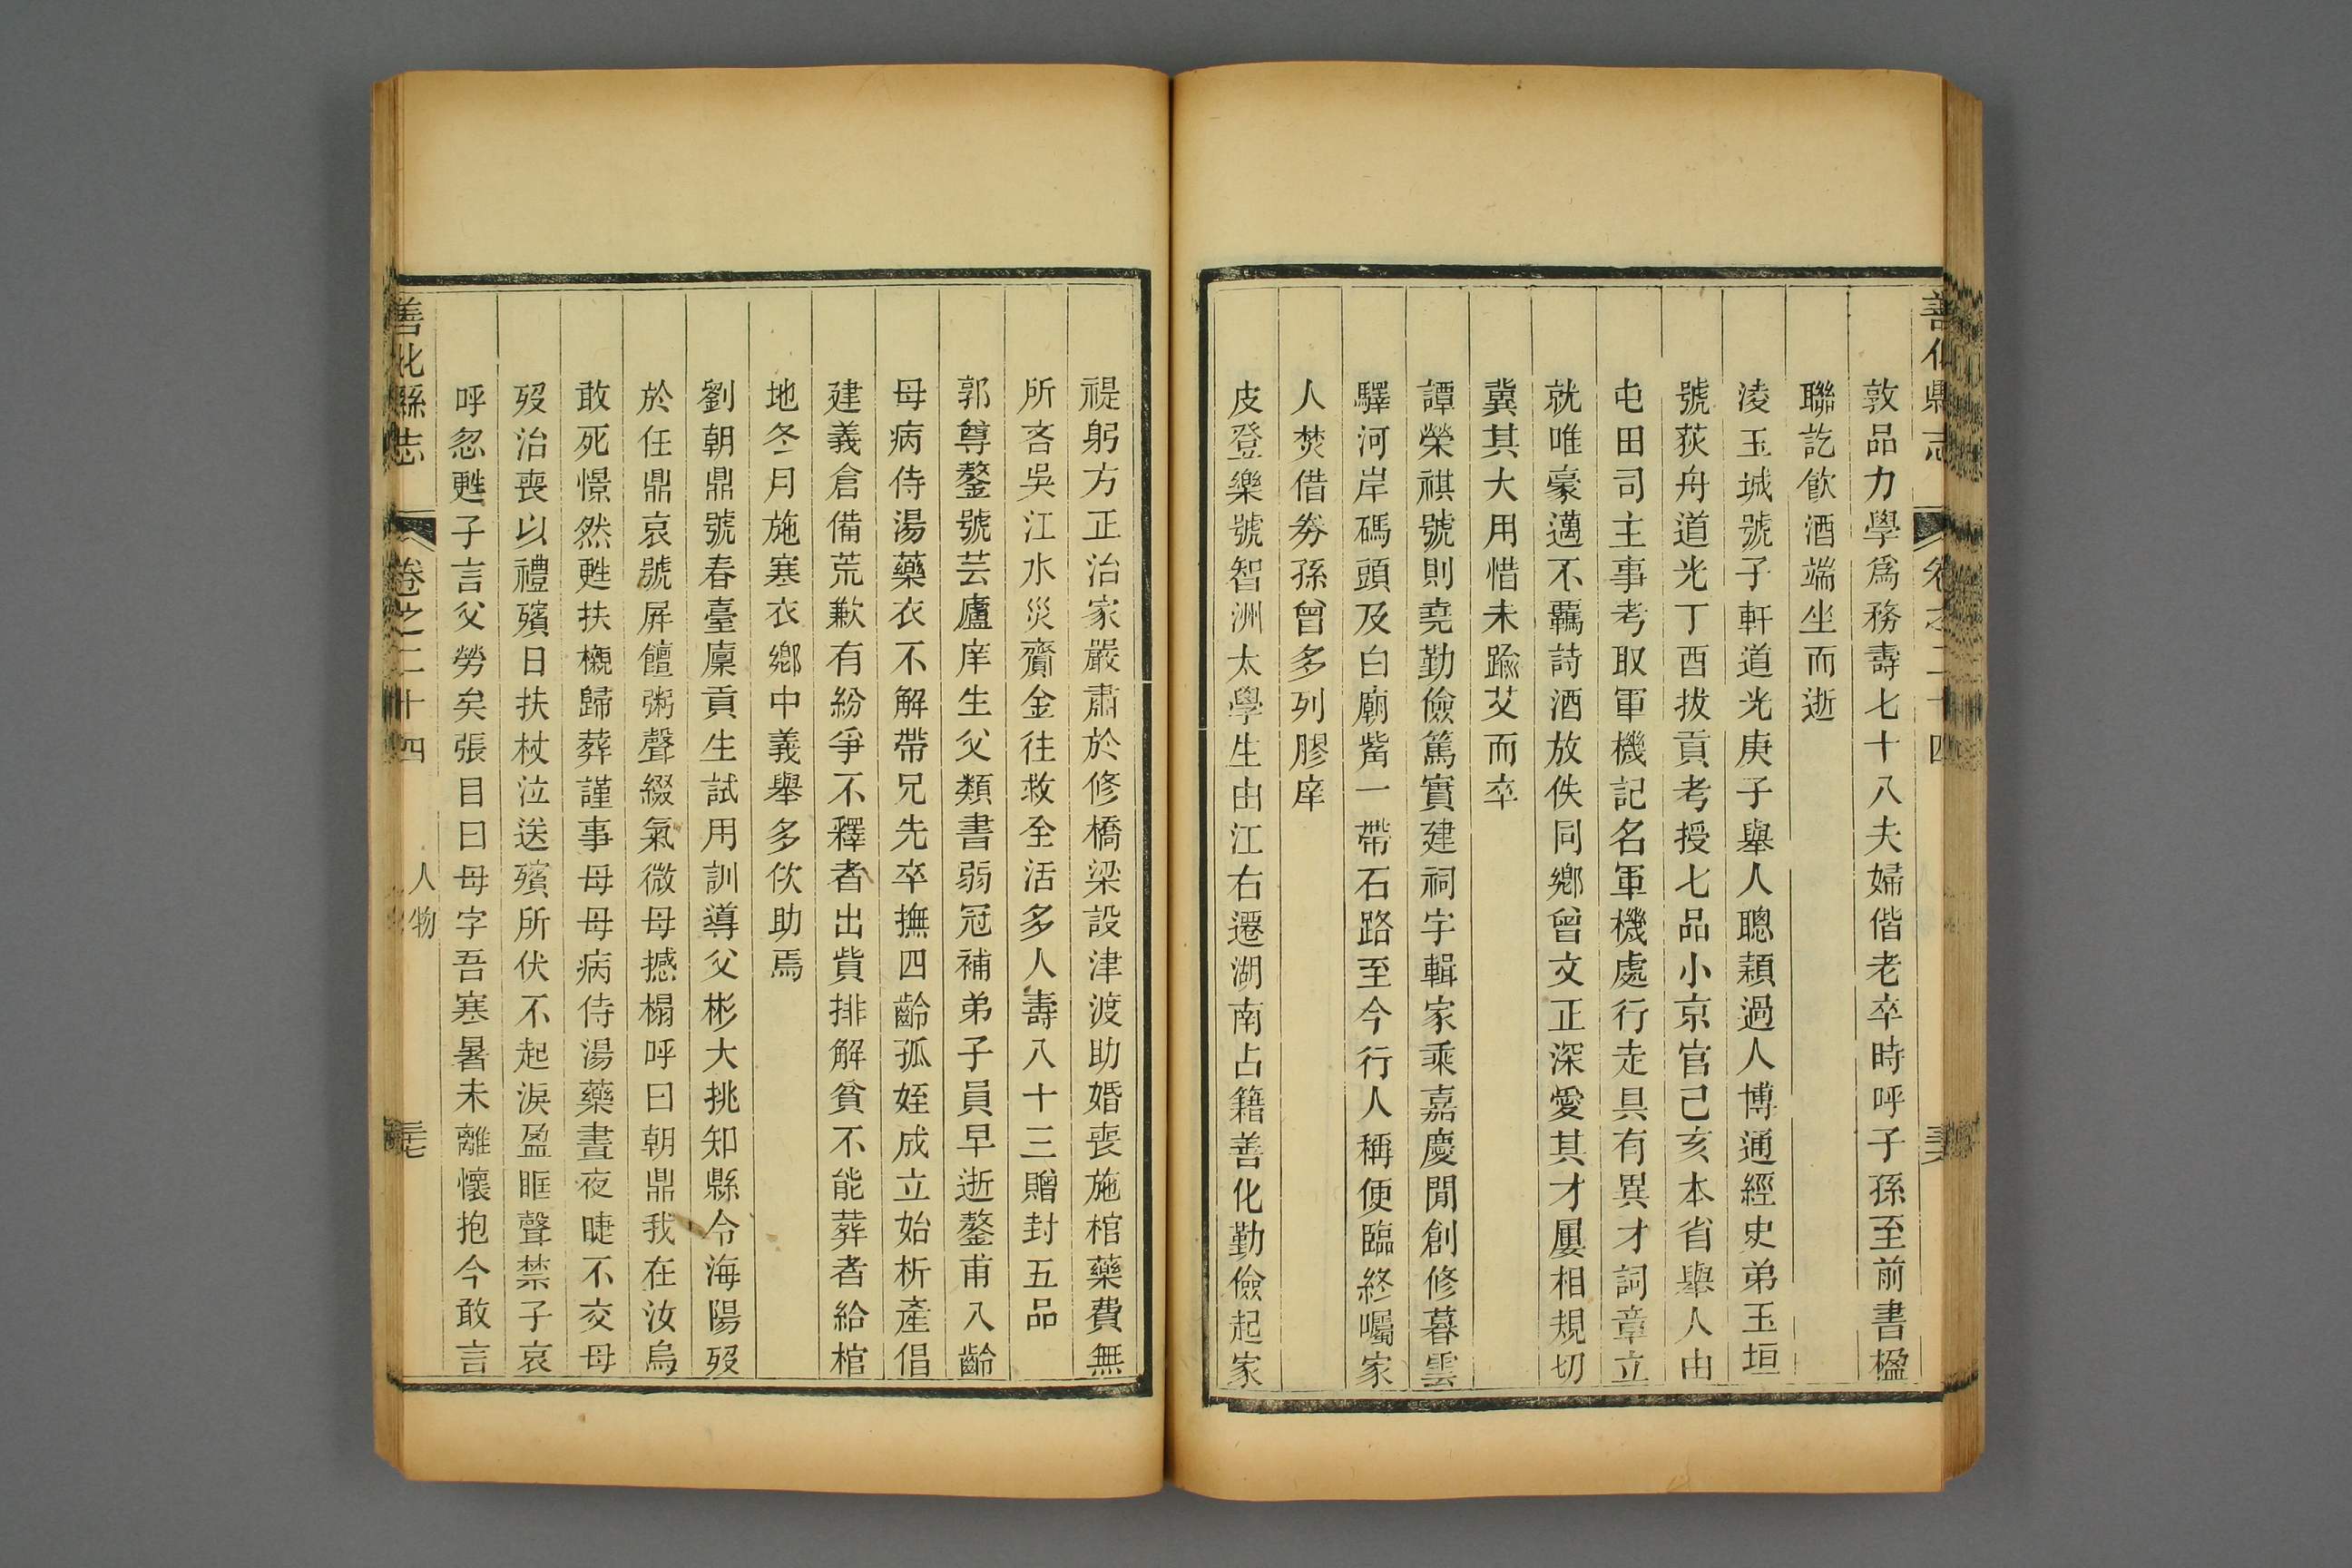 善化縣志
卷之二十四
敦品力學爲務壽七十八夫婦偕老卒時呼子孫至前書楹
聯訖飲酒端坐而逝
淩玉城號子軒道光庚子舉人聰穎過人博通經史弟玉垣
號荻舟道光丁酉拔貢考授七品小京官己亥本省舉人由
屯田司主事考取軍機記名軍機處行走具有異才詞章立
就唯豪邁不羈詩酒放佚同鄉曾文正深愛其才屢相規切
冀其大用惜未踰艾而卒
譚榮祺號則堯勤儉篤實建祠宇輯家乘嘉慶閒創修暮雲
驛河岸碼頭及白廟觜一帶石路至今行人稱便臨終囑家
人焚借券孫曾多列膠庠
皮登樂號智洲太學生由江右遷湖南占籍善化勤儉起家
禔躬方正治家嚴肅於修橋梁設津渡助婚喪施棺藥費無
所吝吳江水災齎金往救全活多人壽八十三贈封五品
郭尊鏊號芸廬庠生父類書弱冠補弟子員早逝鏊甫八齡
母病侍湯藥衣不解帶兄先卒撫四齡孤姪成立始析產倡
建義倉備荒歉有紛爭不釋者出貲排解貧不能葬者給棺
地冬月施寒衣鄉中義舉多佽助焉
劉朝鼎號春臺廩貢生試用訓導父彬大挑知縣令海陽歿
於任鼎哀號屏饘粥聲綴氣微母撼榻呼曰朝鼎我在汝烏
敢死憬然甦扶櫬歸葬謹事母母病侍湯藥晝夜睫不交母
歿治喪以禮殯日扶杖泣送殯所伏不起淚盈眶聲禁子哀
呼忽甦子言父勞矣張目曰母字吾寒暑未離懷抱今敢言
善化縣志
卷之二十四
人物
三十七